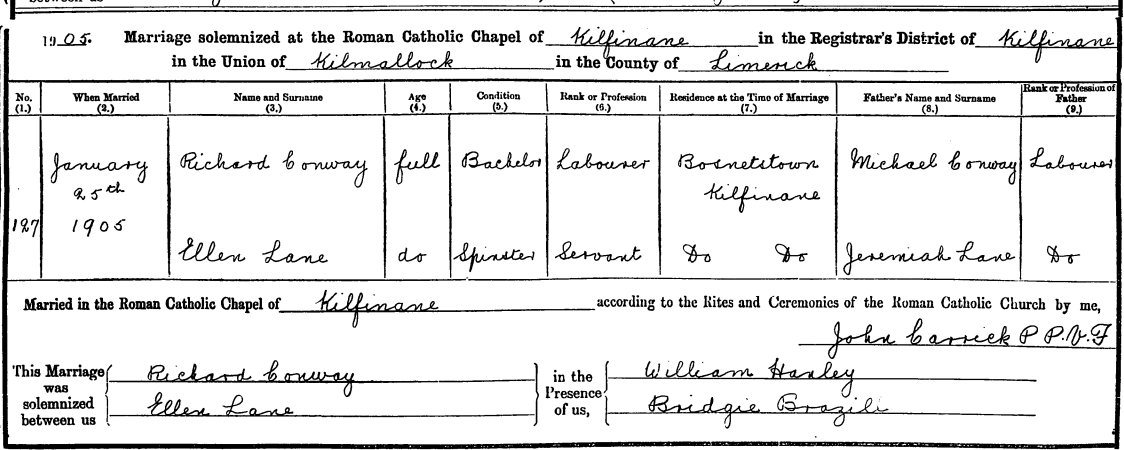 1905. Marriage solemnized at the Roman Catholic Chapel of Kilfinane in the Registrar's District of Kilfinane
in the Union of Kilmallock in the County of Limerick
No. (1.) When Married (2.) Name and Surname (3.) Age (4.) Condition (5.) Rank or Profession (6.) Residence at the Time of Marriage (7.) Father's Name and Surname (8.) Rank or Profession of Father (9.)
January Richard Conway full Bachelor Labourer Bosnetstown Michael Conway Labourer
25th Kilfinane
127 1905
Ellen Lane do Spinster Servant Do Do Jeremiah Lane Do
Married in the Roman Catholic Chapel of Kilfinane according to the Rites and Ceremonies of the Roman Catholic Church by me,
John Carrick P P. V. F
This Marriage was solemnized between us Richard Conway in the Presence of us, William Hanley
Ellen Lane Bridgie Brazili